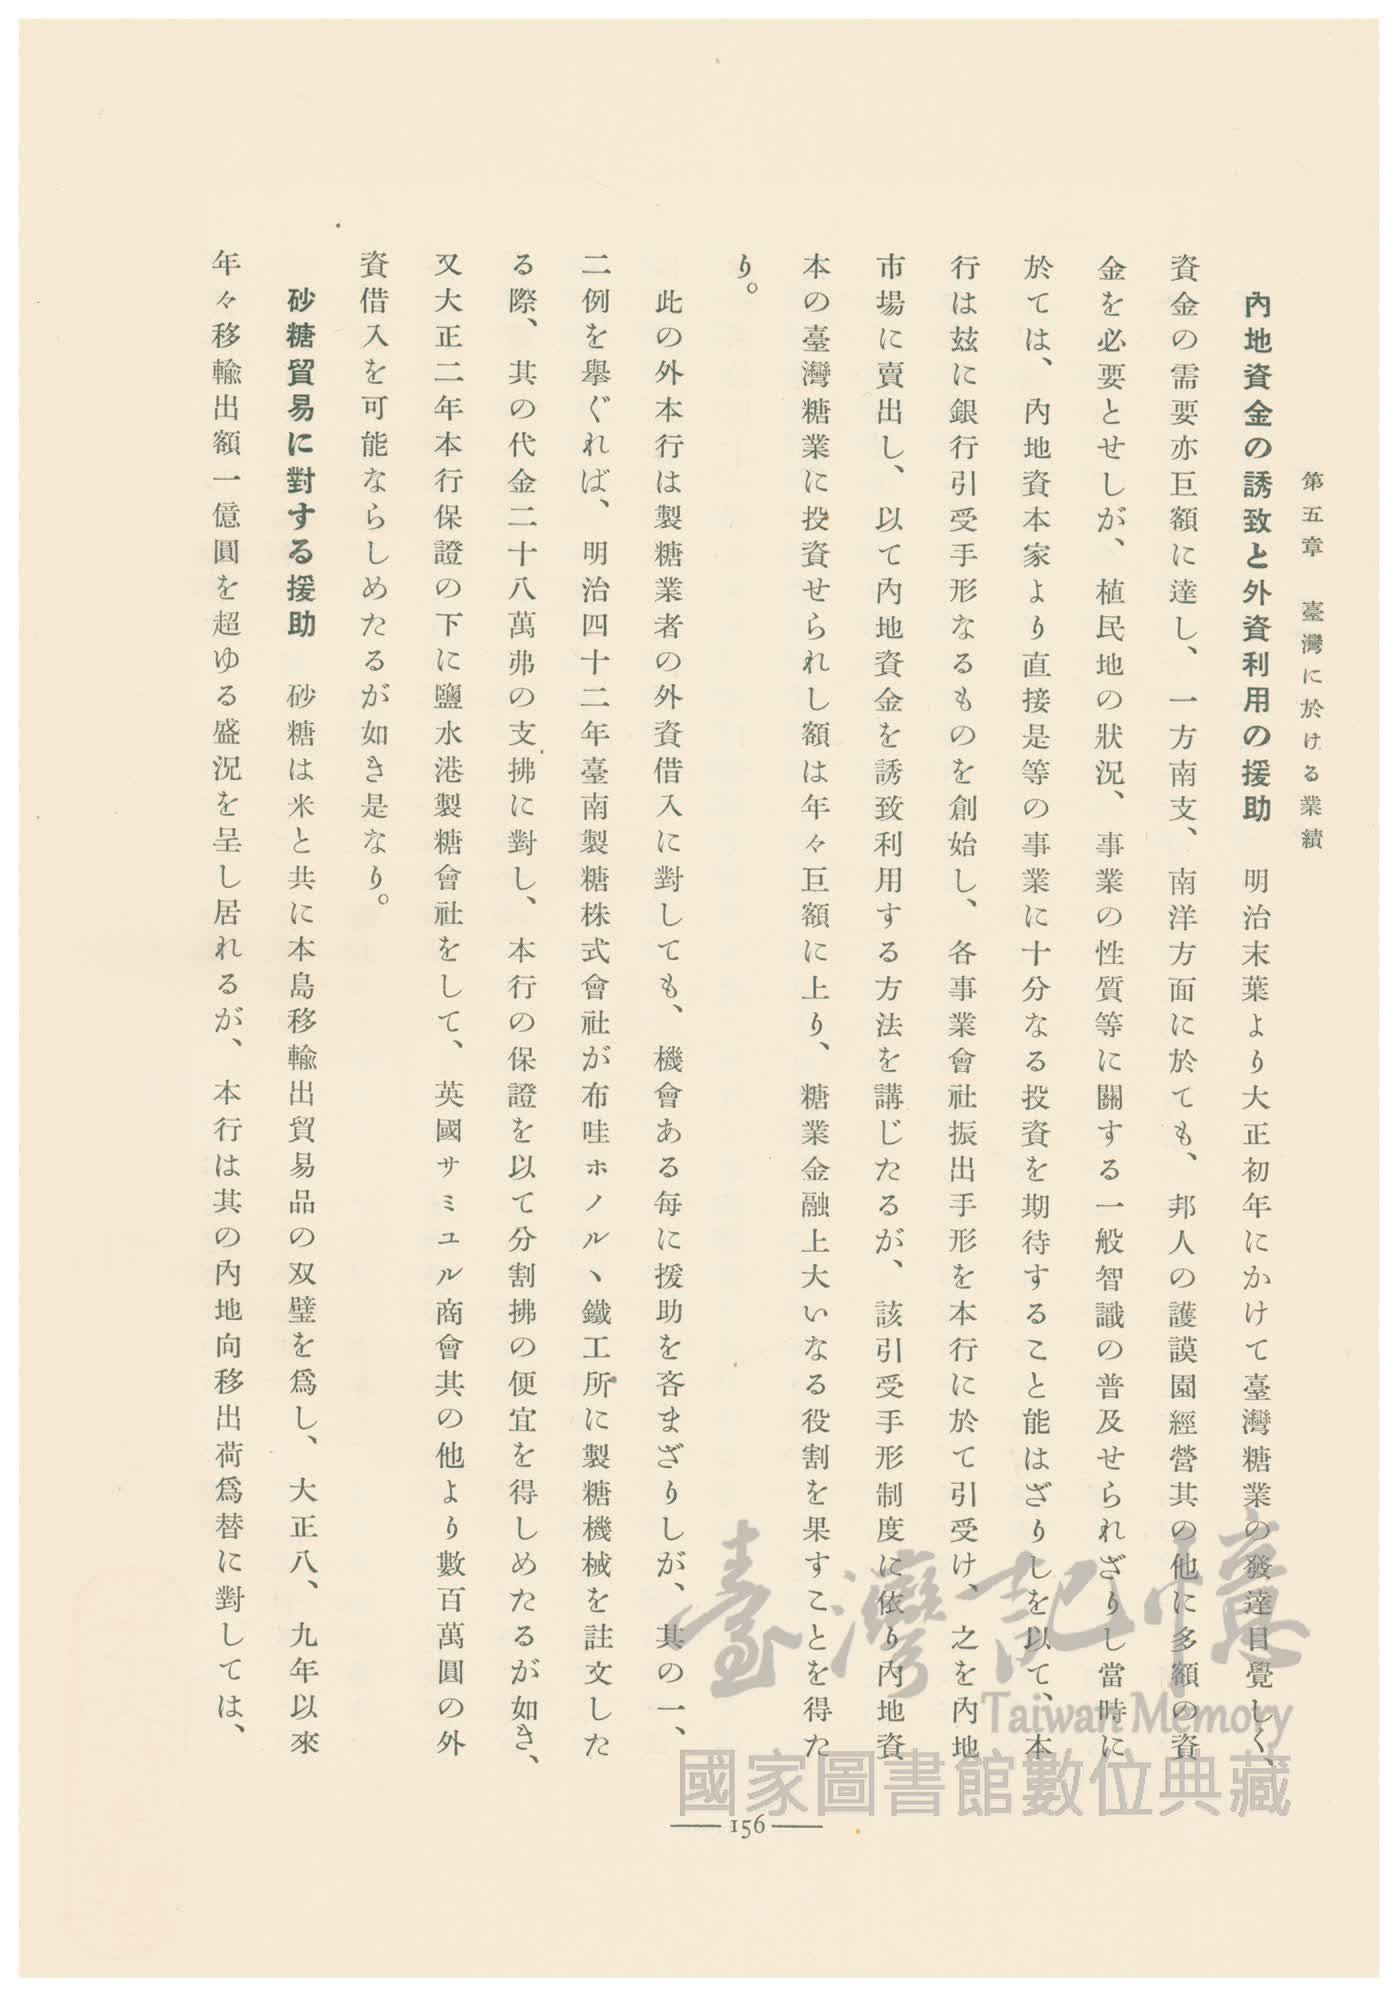 第五章　臺灣に於ける業績
內地資金の誘致と外資利用の援助　明治末葉より大正初年にかけて臺灣糖業の發達目覺しく、
資金の需要亦巨額に達し、一方南支、南洋方面に於ても、邦人の護謨園經營其の他に多額の資
金を必要とせしが、植民地の狀況、事業の性質等に關する一般智識の普及せられざりし當時に
於ては、內地資本家より直接是等の事業に十分なる投資を期待すること能はざりしを以て、本
行は玆に銀行引受手形なるものを創始し、各事業會社振出手形を本行に於て引受け、之を內地
市場に賣出し、以て內地資金を誘致利用する方法を講じたるが、該引受手形制度に依り內地資
本の臺灣糖業に投資せられし額は年々巨額に上り、糖業金融上大いなる役割を果すことを得た
り。
此の外本行は製糖業者の外資借入に對しても、機會ある每に援助を吝まざりしが、其の一、
二例を擧ぐれば、明治四十二年臺南製糖株式會社が布哇ホノルヽ鐵工所に製糖機械を註文した
る際、其の代金二十八萬弗の支拂に對し、本行の保證を以て分割拂の便宜を得しめたるが如き、
又大正二年本行保證の下に鹽水港製糖會社をして、英國サミユル商會其の他より數百萬圓の外
資借入を可能ならしめたるが如き是なり。
砂糖貿易に對する援助　砂糖は米と共に本島移輸出貿易品の双璧を爲し、大正八、九年以來
年々移輸出額一億圓を超ゆる盛況を呈し居れるが、本行は其の內地向移出荷爲替に對しては、
156
臺灣記憶
Taiwan Memory
國家圖書館數位典藏